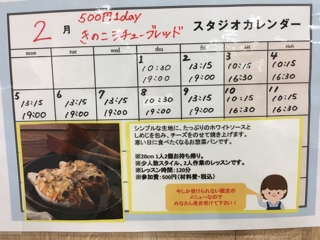 2月 500円1day きのこシチューブレッド スタジオカレンダー
mon tue wed thu fri sat sun
1 2 3 4
10:30 13:15 10:30 13:15
19:00 19:00 16:30 16:30
5 6 7 8 9 10 11
13:15 13:15 13:15 10:30 13:15 10:30 13:15
19:00 19:00 19:00 19:00 19:00 16:30 16:30
シンプルな生地に、たっぷりのホワイトソースと
しめじを包み、チーズをのせて焼き上げます。
寒い日に食べたくなるお惣菜パンです。
※20cm 1人2個お持ち帰り。
※少人数スタイル、2人作業のレッスンです。
※レッスン時間:120分
※参加費:500円(材料費・税込)
今しか受けられない限定の
メニューなので
みなさん是非受けて下さい!